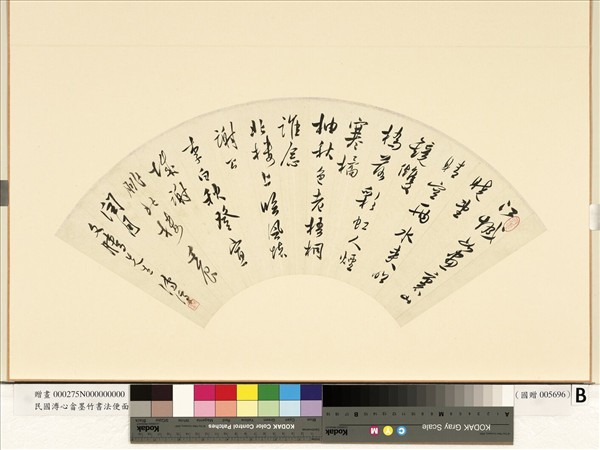 江城如畫裏山
晚望
晴空兩水夾明
鏡雙
橋落彩虹人煙
寒橘
柚秋色老梧桐
誰念
北樓上臨風懷
謝公
李白秋登宣
城謝
朓北樓
先生
溥儒
贈畫 000275N00000000
民國溥心畬墨竹書法便面
(國贈 005696)
B
Kodak
KODAK Color Control Patches
KODAK Gray Scale
C Y M
Kodak
A